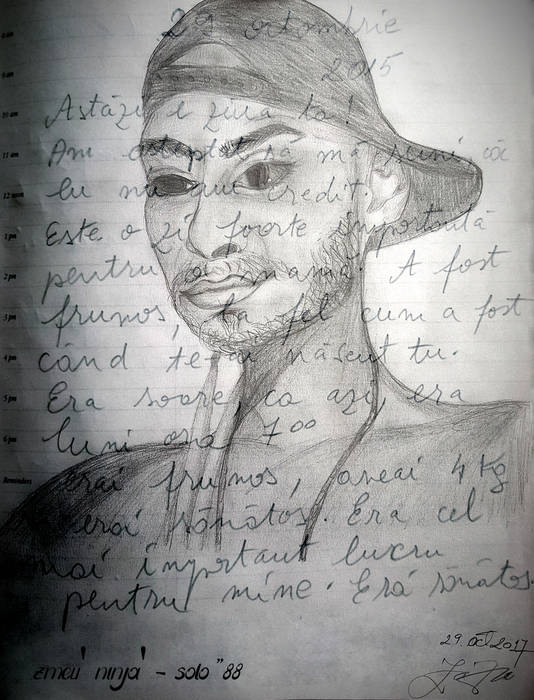 29 octombrie
2015
8 am
9 am
10 am
Astăzi e ziua ta!
11 am
Am așteptat să mă suni, că
12 noon
tu nu ai credit.
1 pm
Este o zi foarte importantă
2 pm
pentru o mamă. A fost
3 pm
frumos, la fel cum a fost
4 pm
când te-ai născut tu.
5 pm
Era soare, ca azi, era
6 pm
luni ora 7⁰⁰
Reminders
erai frumos, aveai 4 kg
erai sănătos. Era cel
mai important lucru
pentru mine. Era sănătos.
29. oct 2017
zmeu' ninja' - solo "88